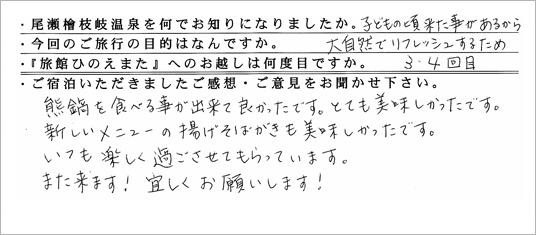 ・尾瀬檜枝岐温泉を何でお知りになりましたか。子どもの頃来た事があるから
・今回のご旅行の目的はなんですか。 大自然でリフレッシュするため
・『旅館ひのえまた』へのお越しは何度目ですか。 3・4回目
・ご宿泊いただきましたご感想・ご意見をお聞かせ下さい。
熊鍋を食べる事が出来て良かったです。とても美味しかったです。
新しいメニューの揚げそばがきも美味しかったです。
いつも楽しく過ごさせてもらっています。
また来ます!宜しくお願いします!